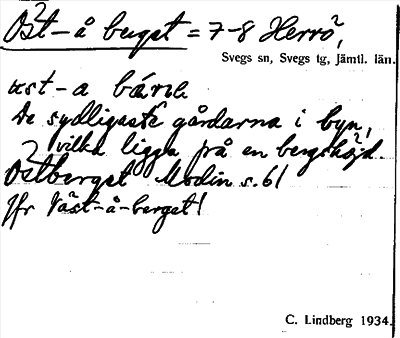 Öst-å berget = 7-8 Herrö,
Svegs sn, Svegs tg, Jämtl. län.
De sydligaste gårdarna i byn,
vilka ligga på en bergshöjd.
Östberget Modin s. 61
Jfr Väst-å-berget!
C. Lindberg 1934.